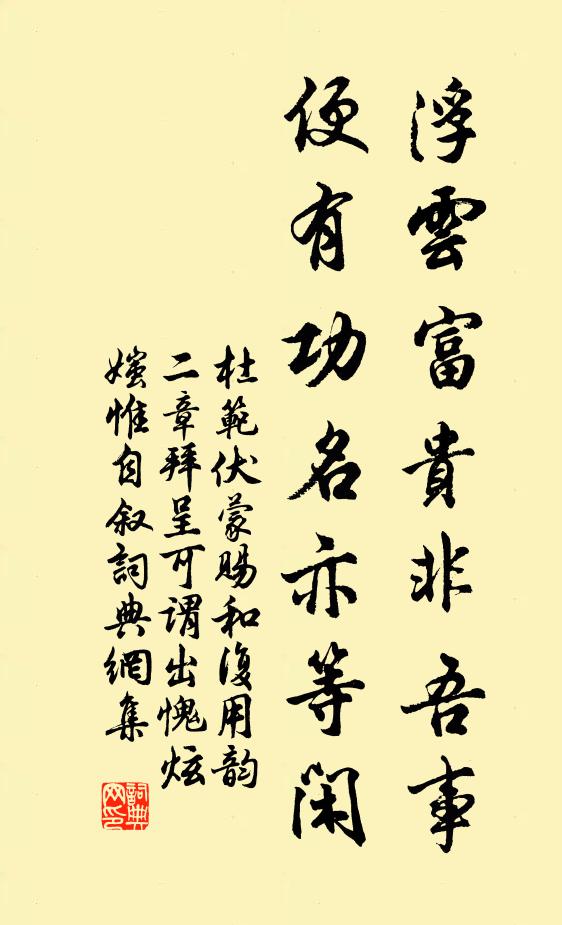 浮雲富貴非吾事
便有功名亦等閑
杜範伏蒙賜和復用韵
二章拜呈可謂出愧炫
媸惟自叙詞典網集
詞典
网印